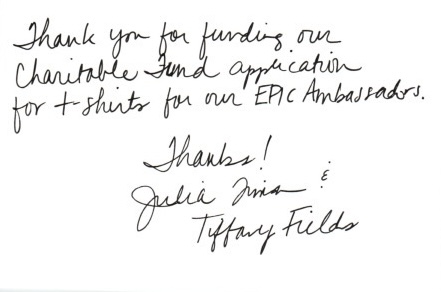 Thank you for funding our
Charitable Fund application
for t-shirts for our EPIC Ambassadors.
Thanks!
Julia &
Tiffany Fields